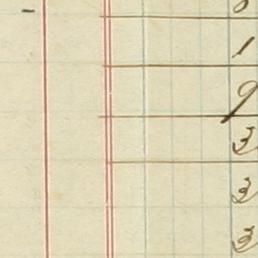 -
1
9
3
3
3